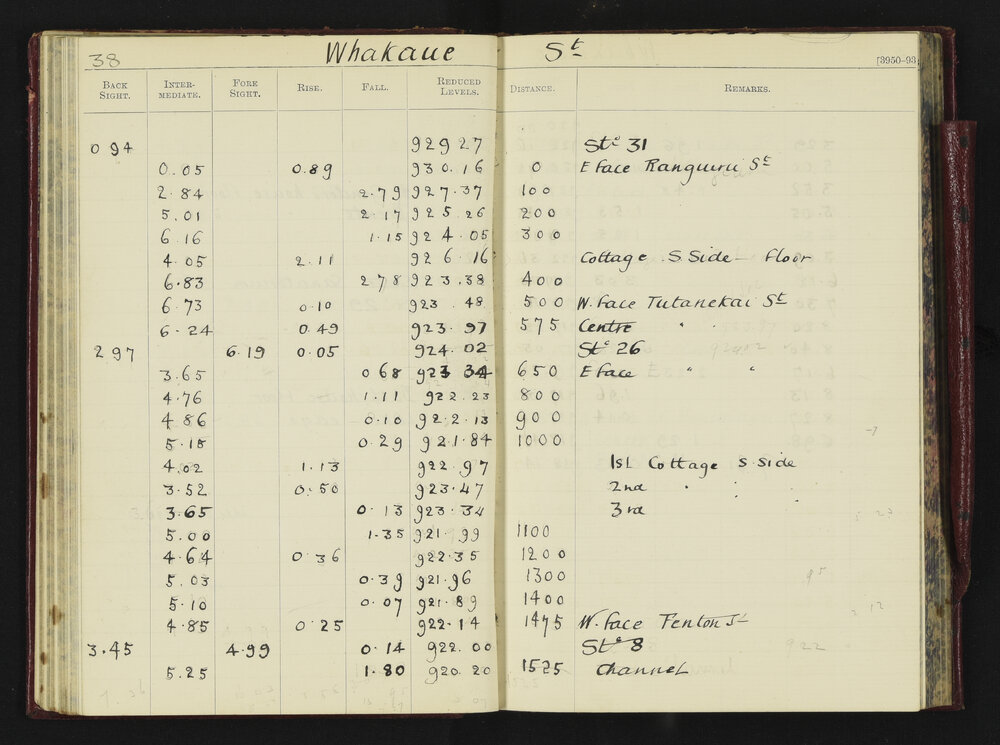 38 Whakaue St [3950-93
BACK SIGHT. INTER-MEDIATE. FORE SIGHT. RISE. FALL. REDUCED LEVELS. DISTANCE. REMARKS.
0 94 929 27 Stn 31
0.05 0.89 930.16 0 E Face Ranguuru St
2.84 2.79 927.37 100
5.01 2.17 925.26 200
6.16 1.15 924.05 300
4.05 2.11 926.16 Cottage S Side - Floor
6.83 2 78 923.38 400
6.73 0.10 923.48 500 W. Face Tutanekai St
6.24 0.49 923.97 575 Centre " "
2 97 6.19 0.05 924.02 Stn 26
3.65 0 68 923 34 650 E Face " "
4.76 1.11 922.23 800
4 86 0.10 922.13 900
5.15 0.29 921.84 1000
4.02 1.13 922.97 1st Cottage S Side
3.52 0.50 923.47 2nd " " "
3.65 0 13 923.34 3rd
5.00 1.35 921.99 1100
4.64 0.36 922.35 1200
5.03 0.39 921.96 1300
5.10 0.07 921.89 1400
4.85 0.25 922.14 1475 W. Face Fenton St
3.45 4.99 0.14 922.00 Stn 8
5.25 1.80 920.20 1525 Channel